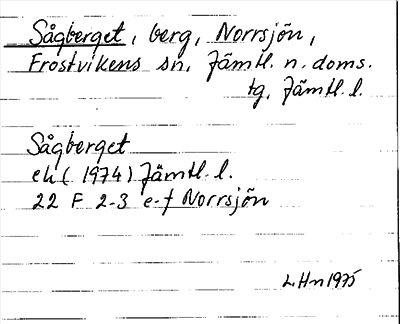 Sågberget, berg, Norrsjön,
Frostvikens sn, Jämtl. n. doms.
tg, Jämtl. l.
Sågberget
ek (1974) Jämtl. l.
22 F 2-3 e-f Norrsjön
L Hn 1975